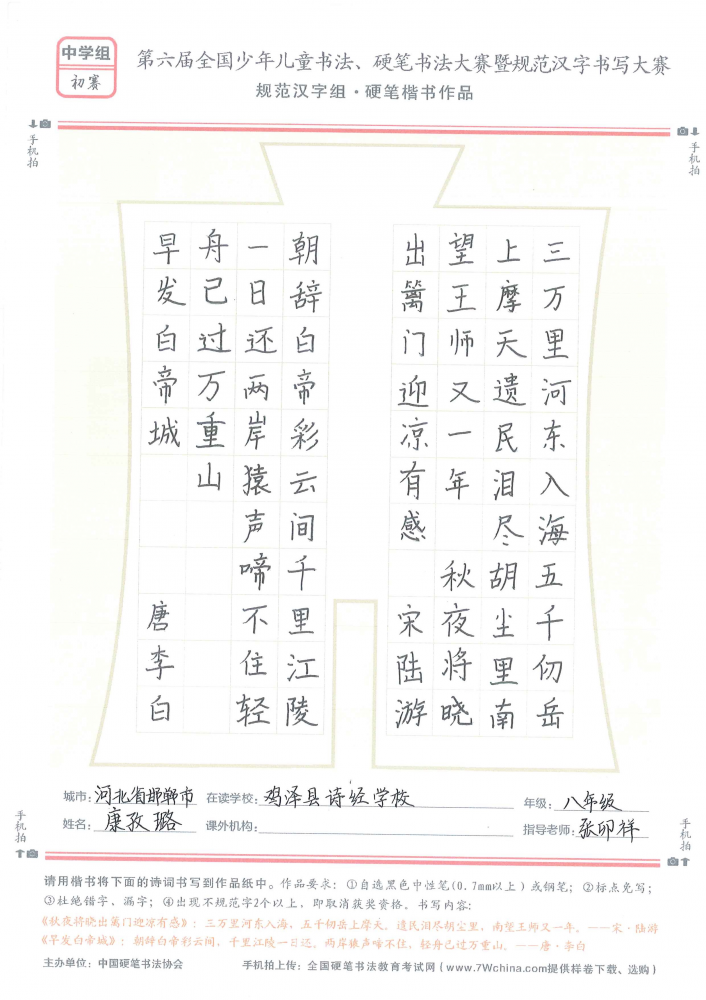 中学组
初赛
第六届全国少年儿童书法、硬笔书法大赛暨规范汉字书写大赛
规范汉字组·硬笔楷书作品
手机拍
手机拍
三万里河东入海五千仞岳
上摩天遗民泪尽胡尘里南
望王师又一年 秋夜将晓
出篱门迎凉有感 宋陆游
朝辞白帝彩云间千里江陵
一日还两岸猿声啼不住轻
舟已过万重山
早发白帝城 唐李白
城市：河北省邯郸市 在读学校：鸡泽县诗经学校 年级：八年级
姓名：康孜璐 课外机构： 指导老师：张卯祥
手机拍
手机拍
请用楷书将下面的诗词书写到作品纸中。作品要求：①自选黑色中性笔(0.7mm以上)或钢笔；②标点免写；
③杜绝错字、漏字；④出现不规范字2个以上，即取消获奖资格。书写内容：
《秋夜将晓出篱门迎凉有感》：三万里河东入海，五千仞岳上摩天。遗民泪尽胡尘里，南望王师又一年。——宋·陆游
《早发白帝城》：朝辞白帝彩云间，千里江陵一日还。两岸猿声啼不住，轻舟已过万重山。——唐·李白
主办单位：中国硬笔书法协会 手机拍上传：全国硬笔书法教育考试网（www.7Wchina.com提供样卷下载、选购）